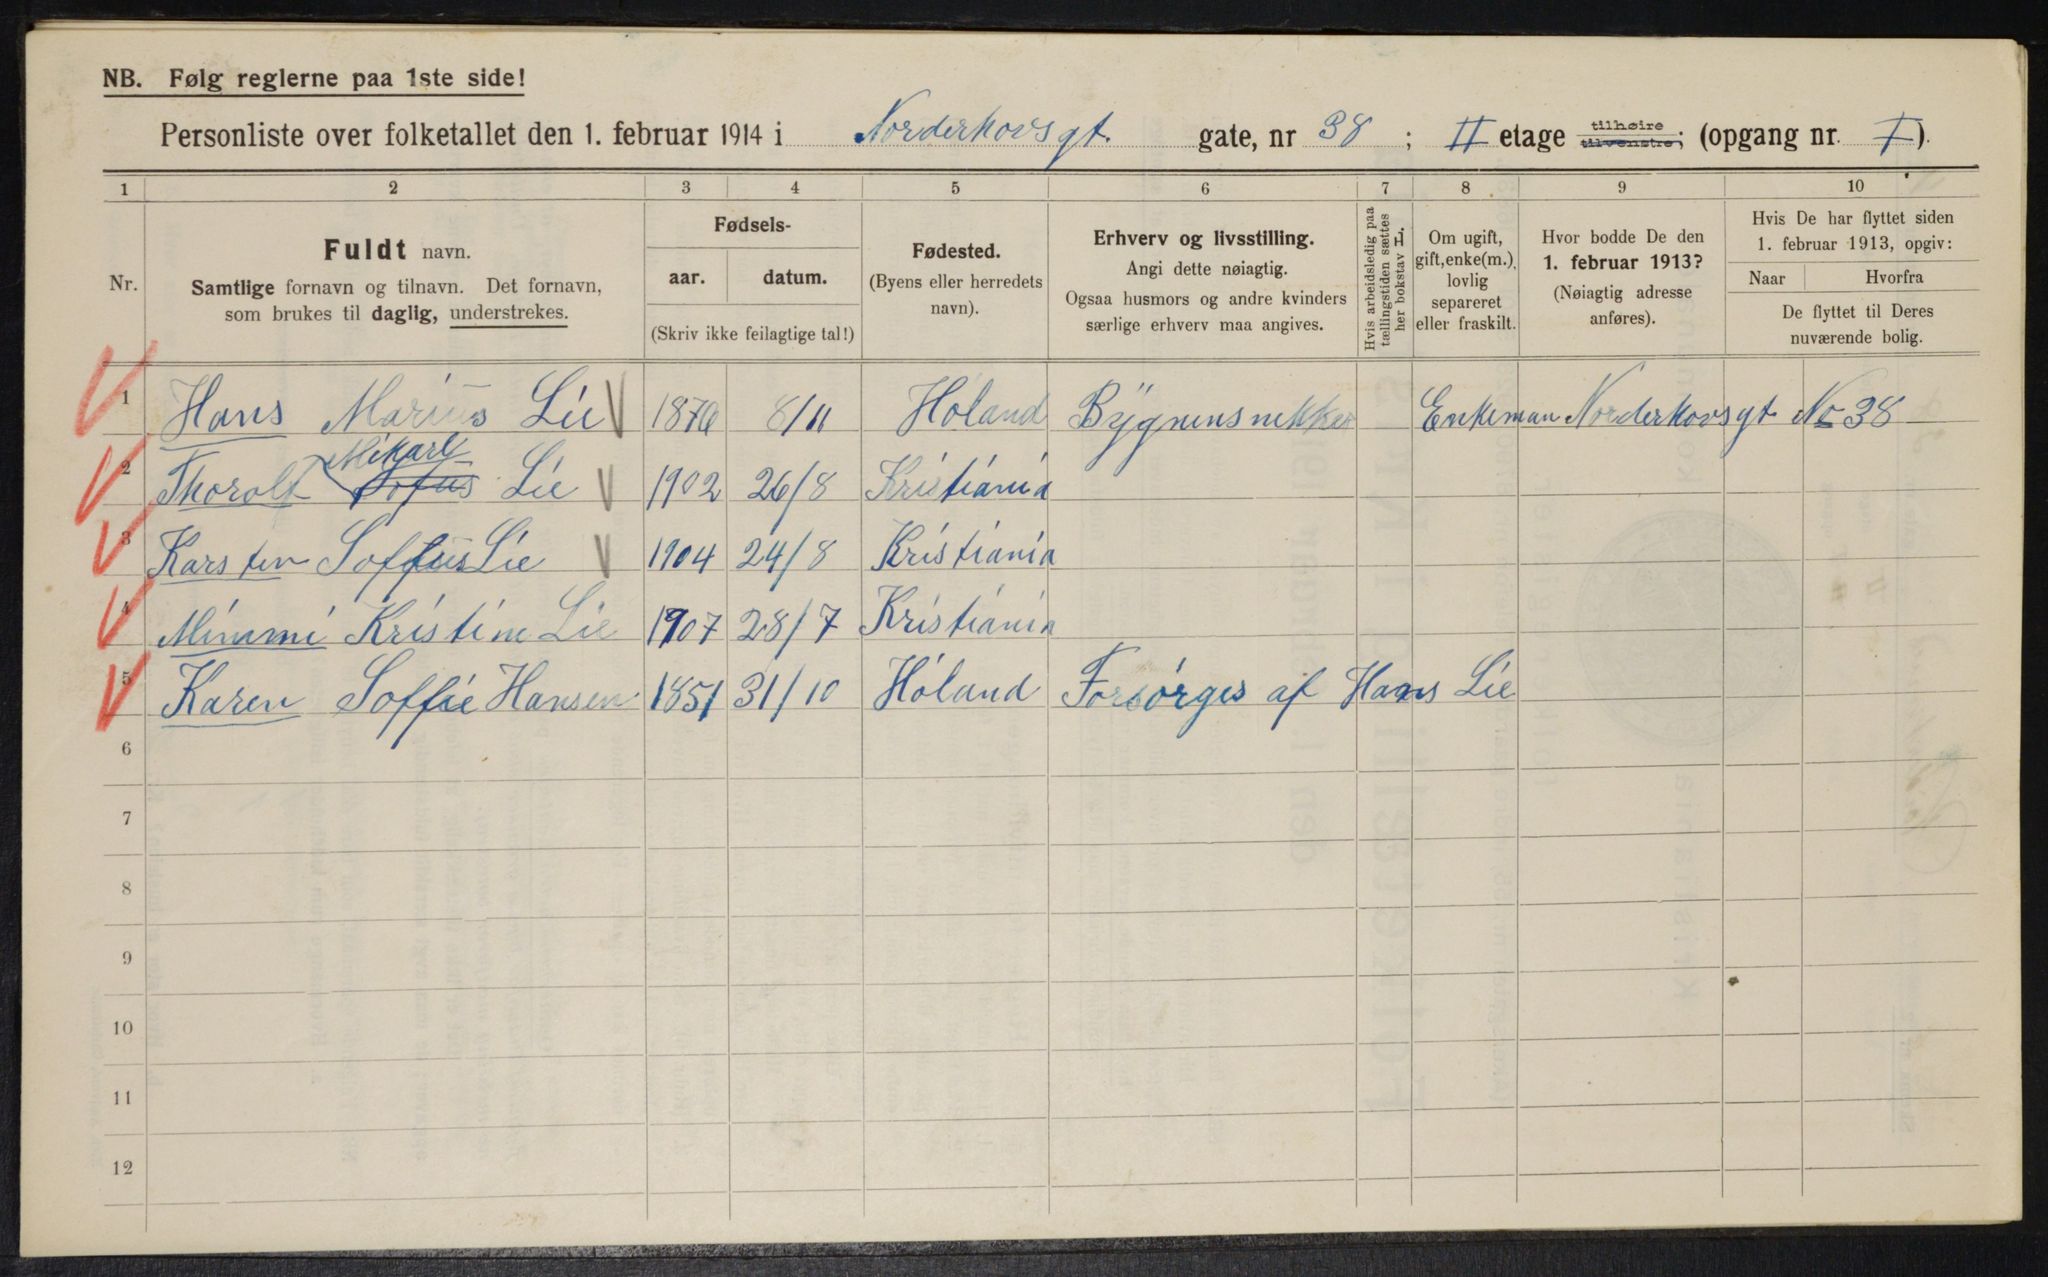 NB. Følg reglerne paa 1ste side!
Personliste over folketallet den 1. februar 1914 i Norderhovsgt. gate, nr 38; II etage tilhøire tilvenstre; (opgang nr. I).
1 2 3 4 5 6 7 8 9 10
Nr.
Fuldt navn.
Samtlige fornavn og tilnavn. Det fornavn,
som brukes til daglig, understrekes.
Fødsels-
aar. datum.
(Skriv ikke feilagtige tal!)
Fødested.
(Byens eller herredets
navn).
Erhverv og livsstilling.
Angi dette nøiagtig.
Ogsaa husmors og andre kvinders
særlige erhverv maa angives.
Hvis arbeidsledig paa
tællingstiden sættes
her bokstav L.
Om ugift,
gift, enke(m.),
lovlig
separeret
eller fraskilt.
Hvor bodde De den
1. februar 1913?
(Nøiagtig adresse
anføres).
Hvis De har flyttet siden
1. februar 1913, opgiv:
Naar Hvorfra
De flyttet til Deres
nuværende bolig.
1 Hans Marius Lie 1876 8/11 Höland Bygnensnekker Enkeman Norderhovsgt No 38
Mikael
2 Thorolf Sofus Lie 1902 26/8 Kristiania
3 Karsten Soffus Lie 1904 24/8 Kristiania
4 Mimmi Kristine Lie 1907 28/7 Kristiania
5 Karen Soffie Hansen 1851 31/10 Höland Forsörges af Hans Lie
6
7
8
9
10
11
12